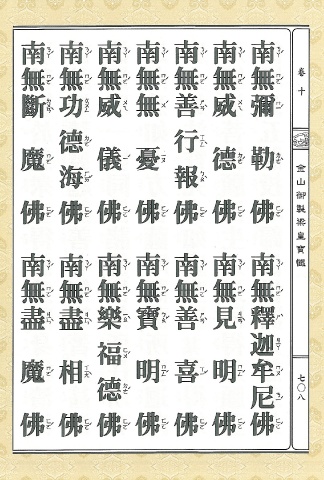 卷十
金山御製梁皇寶懺
七〇八
南無彌勒佛
南無釋迦牟尼佛
南無威德佛
南無見明佛
南無善行報佛
南無善喜佛
南無無憂佛
南無寶明佛
南無威儀佛
南無樂福德佛
南無功德海佛
南無盡相佛
南無斷魔佛
南無盡魔佛